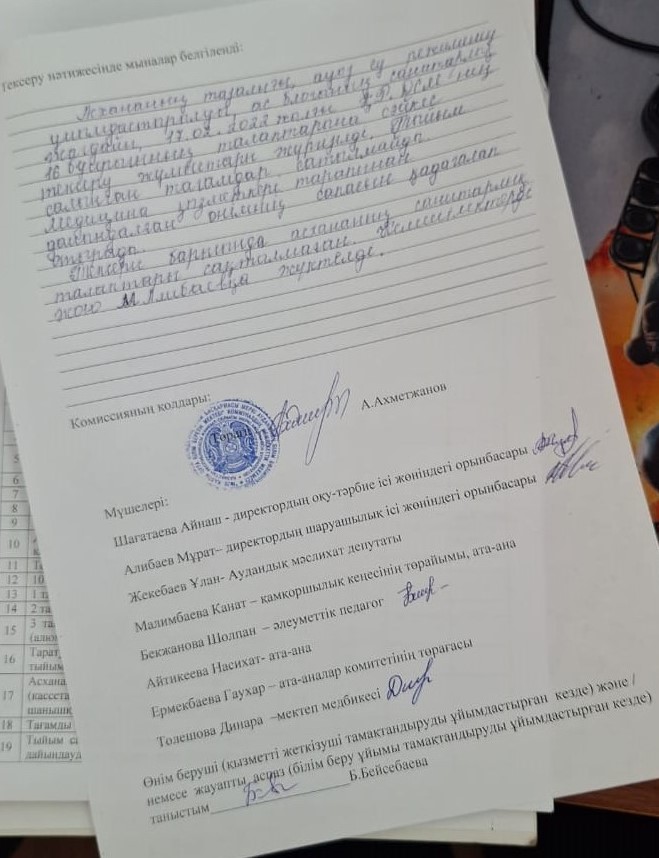 тексеру нәтижесінде мыналар белгіленді:
Асхананың тазалығы, ауыз су режиміні
ұйымдастырылуы, ас блогының санитарлық
жағдайы, 17.02.2022 жолғы Қ.Р. ДСМ-нің
16 бұйрығының талаптарына сәйкес
тексеру жұмыстары жүргізілді. Тыйым
салынған тағамдар сатылмайды.
Медицина қызметкері тарапынан
дайындалған өнімнің сапасын қадағалап
отырады.
Тексеріс барысында асхананың санитарлық
талаптары сақталмаған. Кемшіліктерді
жою М.Алибаевқа жүктелді.
Комиссияның қолдары:
Төраға
А.Ахметжанов
Мүшелері:
Шагатаева Айнаш - директордың оқу-тәрбие ісі жөніндегі орынбасары
Алибаев Мұрат– директордың шаруашылық ісі жөніндегі орынбасары
Жекебаев Ұлан- Аудандық мәслихат депутаты
Малимбаева Канат – қамқоршылық кеңесінің төрайымы, ата-ана
Бекжанова Шолпан – әлеуметтік педагог
Айтикеева Насихат- ата-ана
Ермекбаева Гаухар – ата-аналар комитетінің төрағасы
Толешова Динара –мектеп медбикесі
Өнім беруші (қызметті жеткізуші тамақтандыруды ұйымдастырған кезде) және /
немесе жауапты аспаз (білім беру ұйымы тамақтандыруды ұйымдастырған кезде)
таныстым Б.Бейсебаева
5
6
7
8
9
10
11
12 10
13 1 т
14 2 та
15 3 та
(алю
16 Тарат
тыйым
Асхана
17 (кассета
шанышқ
18 Тағамды
19 Тыйым са
дайындауд